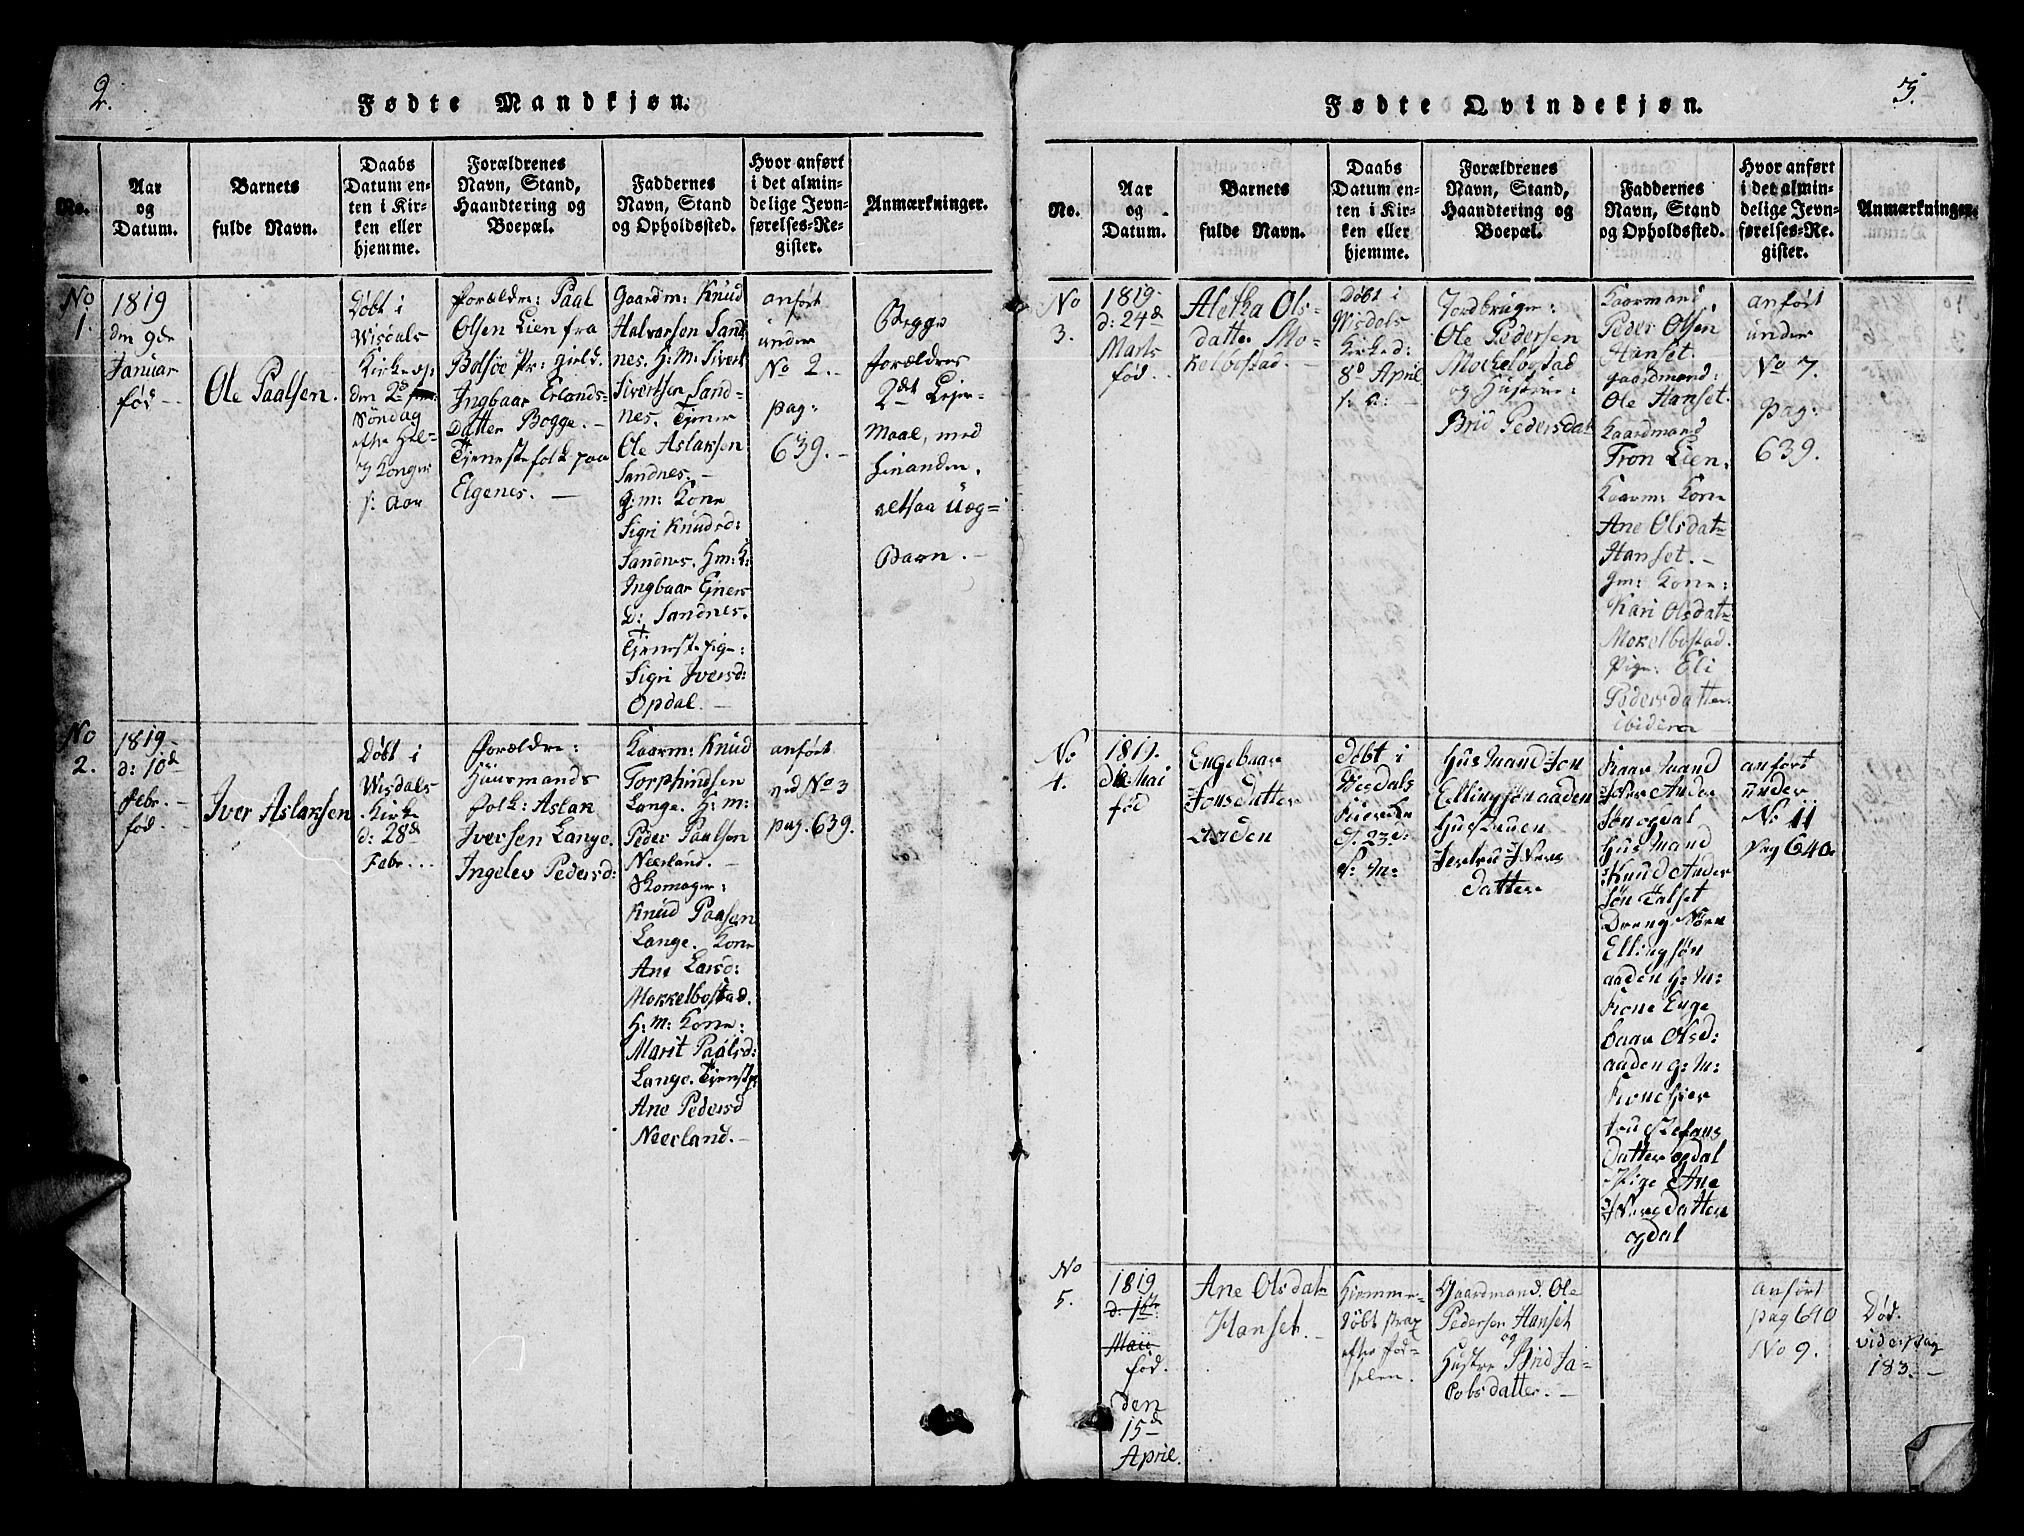 2.
Fødte Mandkjøn.
No.
Aar
og
Datum.
Barnets
fulde Navn.
Daabs
Datum en-
ten i Kir-
ken eller
hjemme.
Forældrenes
Navn, Stand,
Haandtering og
Boepæl.
Faddernes
Navn, Stand
og Opholdssted.
Hvor anført
i det almin-
delige Jevn-
førelses-Re-
gister.
Anmærkninger.
No
1.
1819
den 9de
Januar
fød.
Ole Paalsen.
Døbt i
Wisdals
Kirke
den 2d
Søndag
efter Hel-
3 Konger
s: Aar
Forældre: Paal
Olsen Lien fra
Bolsøe Pr: gield.
Ingbaar Erlands-
Datter Bogge. -
Tjenestefolk paa
Elgenes. -
Gaardm: Knud
Halvarsen Sand
nes. H: M: Sivert
Sivertsen Sand-
nes. Tjener
Ole Aslaksen
Sandnes. -
G: m: Kone
Sigri Knudsd:
Sandnes. Hm: K:
Ingbaar Ejners
D: Sandnes.
Tjenestepige:
Sigri Iversd:
Opdal. -
anført
under
No 2. -
pag:
639. -
Begge
forældres
2det Leier-
Maal, med
hinanden,
altsaa Uæg-
Barn. -
No
2.
1819
d: 10d
Febr. -
fød.
Iver Aslaksen
Døbt i
Wisdals
Kirke
d: 28d
Febr...
Forældre:
Huusmands
folk: Aslak
Iversen Lange.
Ingelev Pedersd:
Gaarm: Knud
Torphindsen
Lange. H: m:
Peder Paulsen
Neerland. -
Skomager:
Knud Paasen
Lange. Kone
Ane Larsd:
Mokkelbostad.
H: m: Kone:
Marit Paalsd:
Lange. Tjenstp
Ane Pedersd
Neerland. -
anført
ved No 3
pag. 639.
3.
Fødte Qvindekjøn.
No.
Aar
og
Datum.
Barnets
fulde Navn.
Daabs
Datum en-
ten i Kir-
ken eller
hjemme.
Forældrenes
Navn, Stand,
Haandtering og
Boepæl.
Faddernes
Navn, Stand
og Opholdssted.
Hvor anført
i det almin-
delige Jevn-
førelses-Re-
gister.
Anmærkninger.
No
3.
1819
d: 24d
Marts
fød.
Aletha Ols-
datter Mo-
kelbostad.
Døbt i
Wisdals
Kirke d:
8d April
s: a:
Jordbruger:
Ole Pedersen
Mockelbostad
og Hustrue:
Brid Pedersdat
Gaarmand
Peder Olsen
Hanset.
gaardmand:
Ole Hanset.
Gaardmand
Tron Lien.
Gaarm: Kone
Ane Olsdat-
Hanset. -
Gm: Kone:
Kari Olsdat-
Mokelbostad.
Pige: Eli
Pedersdatter
ibidem
anført
under
No 7.
pag:
639.
No
4.
1819.
Mai
fød
Engebaar
Jonsdatter
Aaden
døbt i
Wisdals
Kierke
d. 23d:
s: M:
Husmand Jon
Ellingsøn aaden
Hustruen
Jertru Ivers
datter
Gaar Mand
Iver Ander
søn ogdal
Hus Mand
Knud Ander
søn Talset
Dreng
Ellingsøn
aaden H: M:
Kone Enge
baar Olsd:
aaden g: M:
Kone Gier
tru Stefans
datter ogdal
Pige Ane
Iversdatter
ogdal
anført
under
No 11
Pag 640
No
5.
1819
d. 16de
Maii.
fød.
den
15d
April.
Ane Olsdat-
Hanset. -
Hjemme-
døbt strax
efter Fød-
selen.
Gaardmand. Ole
Pedersen Hanset
og
Hustre Brid Ja-
cobsdatter. -
anført
pag 640
No 9.
Død.
vide pag
183. -